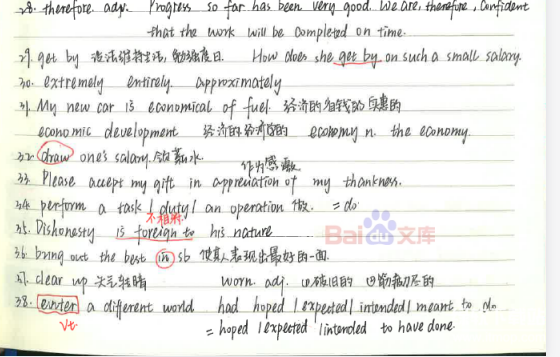 28. therefore adv. Progress so far has been very good. We are, therefore, confident
that the work will be completed on time.
29. get by 设法维持生活, 勉强度日. How does she get by on such a small salary.
30. extremely entirely. approximately
31. My new car is economical of fuel. 经济的省钱的实惠的
economic development 经济的 economy n. the economy.
32. draw one's salary. 领薪水.
作为感激
33. Please accept my gift in appreciation of my thankness.
34. perform a task / duty / an operation 做. = do
不相称
35. Dishonesty is foreign to his nature
Baidu文库
36. bring out the best in sb 使某人表现出最好的一面.
37. clear up 天气转晴 worn. adj. ①破旧的 ②筋疲力尽的
38. enter a different world had hoped / expected / intended / meant to do
vt
= hoped / expected / intended to have done.